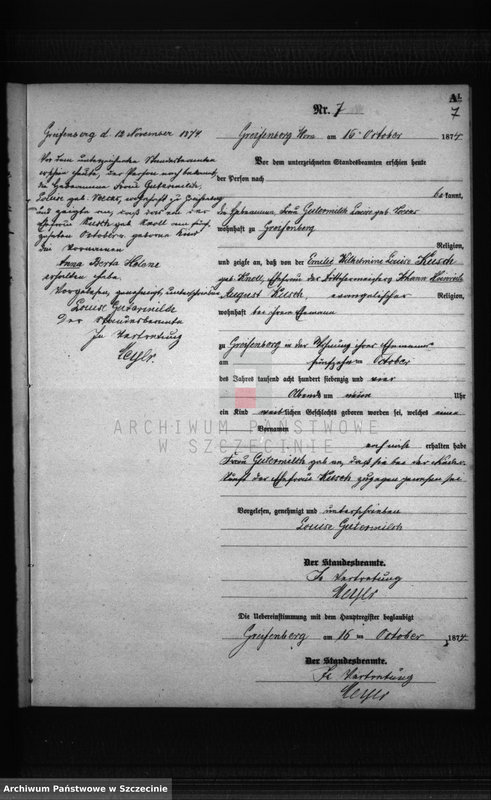 A1.
7
Nr. 7
Greifenberg d. 12 November 1874
Vor dem unterzeichneten Standesbeamten
erschien heute, der Person nach bekannt,
die Hebamme Frau Gutermilch,
Louise geb. wohnhaft zu Greifenberg
und zeigte an, daß dem von der
Ehefrau Kusch geb. Knoll am fünf-
zehnten October geborenen Kind
die Vornamen
Anna Berta Helene
erhalten habe.
Vorgelesen, genehmigt, unterschrieben
Louise Gutermilch
Der Standesbeamte
In Vertretung
Greifenberg Pom am 16 October 1874.
Vor dem unterzeichneten Standesbeamten erschien heute
der Person nach
bekannt,
die Hebamme, Frau Gutermilch Louise geb.
wohnhaft zu Greifenberg
Religion,
und zeigte an, daß von der Emilie Wilhelmine Louise Kusch
geb. Knoll, Ehefrau des Johann Heinrich
August Kusch evangelischer Religion,
wohnhaft bei ihrem Ehemann
zu Greifenberg in der Wohnung ihres Ehemannes
am fünfzehn October
des Jahres tausend acht hundert siebenzig und vier
Abends um neun Uhr
ein Kind weiblichen Geschlechts geboren worden sei, welches
Vornamen
noch nicht erhalten habe
Frau Gutermilch gab an, daß sie bei der Nieder-
kunft der Ehefrau Kusch zugegen gewesen sei.
Vorgelesen, genehmigt und unterschrieben
Louise Gutermilch
Der Standesbeamte.
In Vertretung
Die Uebereinstimmung mit dem Hauptregister beglaubigt
Greifenberg am 16 ten October 1874.
Der Standesbeamte.
In Vertretung
ARCHIWUM PAŃSTWOWE
W SZCZECINIE
Archiwum Państwowe w Szczecinie